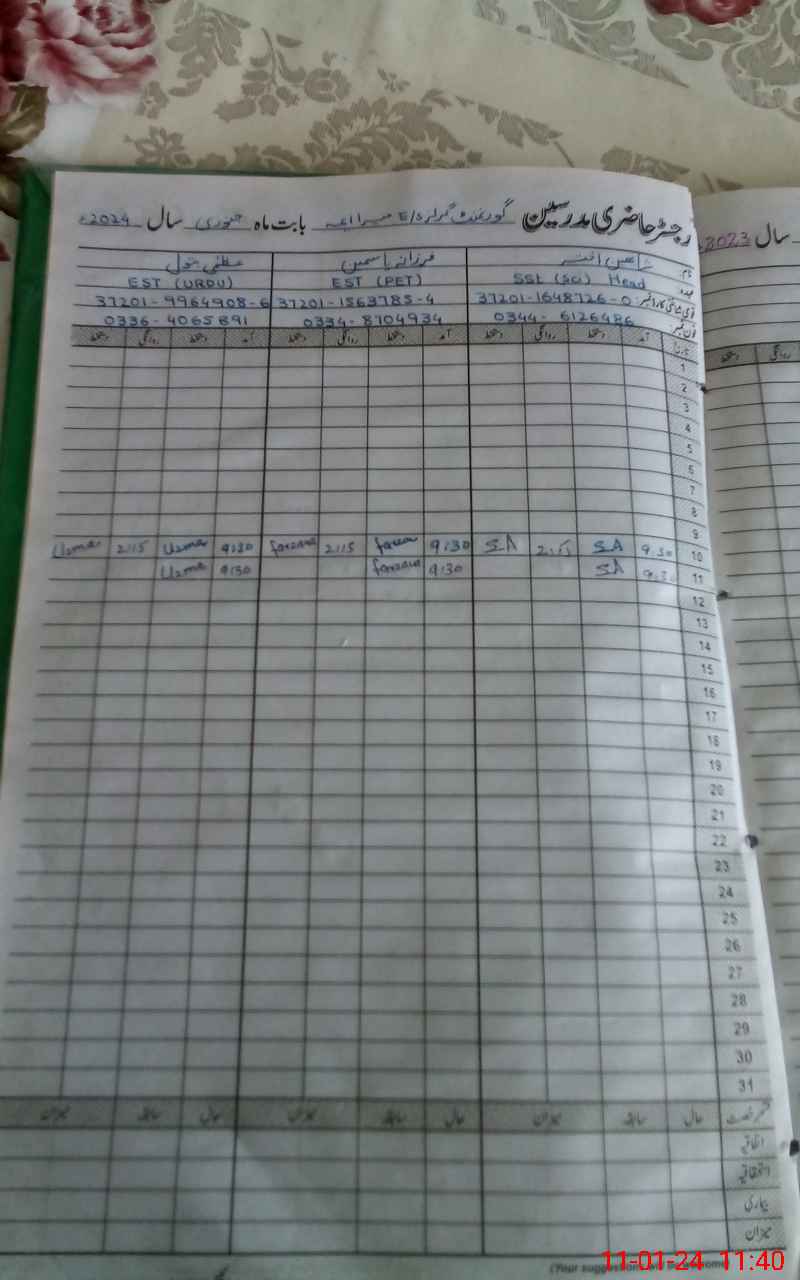 رجسٹر حاضری مدرسین گورنمنٹ گرلز E/S میرا بابت ماہ جنوری سال 2024ء
سال 2023
نام فرزانہ یاسمین عظمیٰ بتول
عہدہ SSt (SG) Head EST (PET) EST (URDU)
قومی شناختی کارڈ نمبر 37201-1648726-0 37201-1563785-4 37201-9964908-6
فون نمبر 0344-6126486 0334-8704934 0336-4065891
تاریخ آمد دستخط روانگی دستخط آمد دستخط روانگی دستخط آمد دستخط روانگی دستخط
روانگی دستخط
1
2
3
4
5
6
7
8
9
10 9:30 SA 2:15 SA 9:30 2:15 Farzana 9:30 Uzma 2:15 Uzma
11 9:30 SA 9:30 Farzana 9:30 Uzma
12
13
14
15
16
17
18
19
20
21
22
23
24
25
26
27
28
29
30
31
قسم رخصت حال سابقہ میزان حال سابقہ میزان حال سابقہ میزان
اتفاقیہ
استحقاقیہ
بیماری
میزان
(Your suggestion
11-01-24 11:40